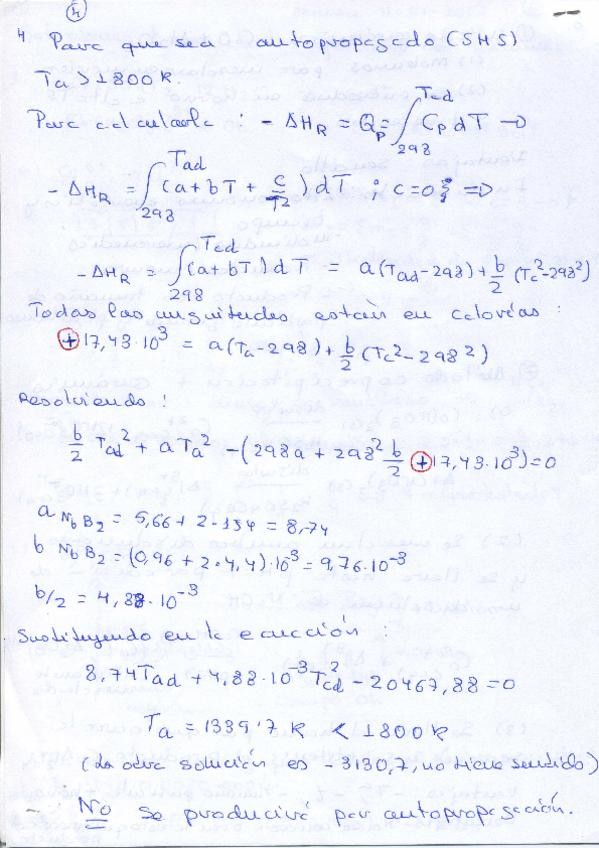 4
4 Para que sea autopropagado (SHS)
Ta > 1800 K.
Para calcularla : - ΔH_R = Q_p = ∫_298^Tad C_p dT →
- ΔH_R = ∫_298^Tad (a + bT + c/T²) dT ; c = 0 ⇒
- ΔH_R = ∫_298^Tad (a + bT) dT = a (Tad - 298) + b/2 (Ta² - 298²)
Todas las magnitudes están en calorías :
+ 17,43·10³ = a (Ta - 298) + b/2 (Ta² - 298²)
Resolviendo :
b/2 Tad² + a Ta² - (298a + 298² b/2 + 17,43·10³) = 0
a NbB₂ = 5,66 + 2·1,54 = 8,74
b NbB₂ = (0,96 + 2·4,4)·10⁻³ = 9,76·10⁻³
b/2 = 4,88·10⁻³
Sustituyendo en la ecuación :
8,74 Tad + 4,88·10⁻³ Tad² - 20467,88 = 0
Ta = 1339'7 K < 1800 K
(La otra solución es - 3130,7, no tiene sentido)
No se producirá por autopropagación.